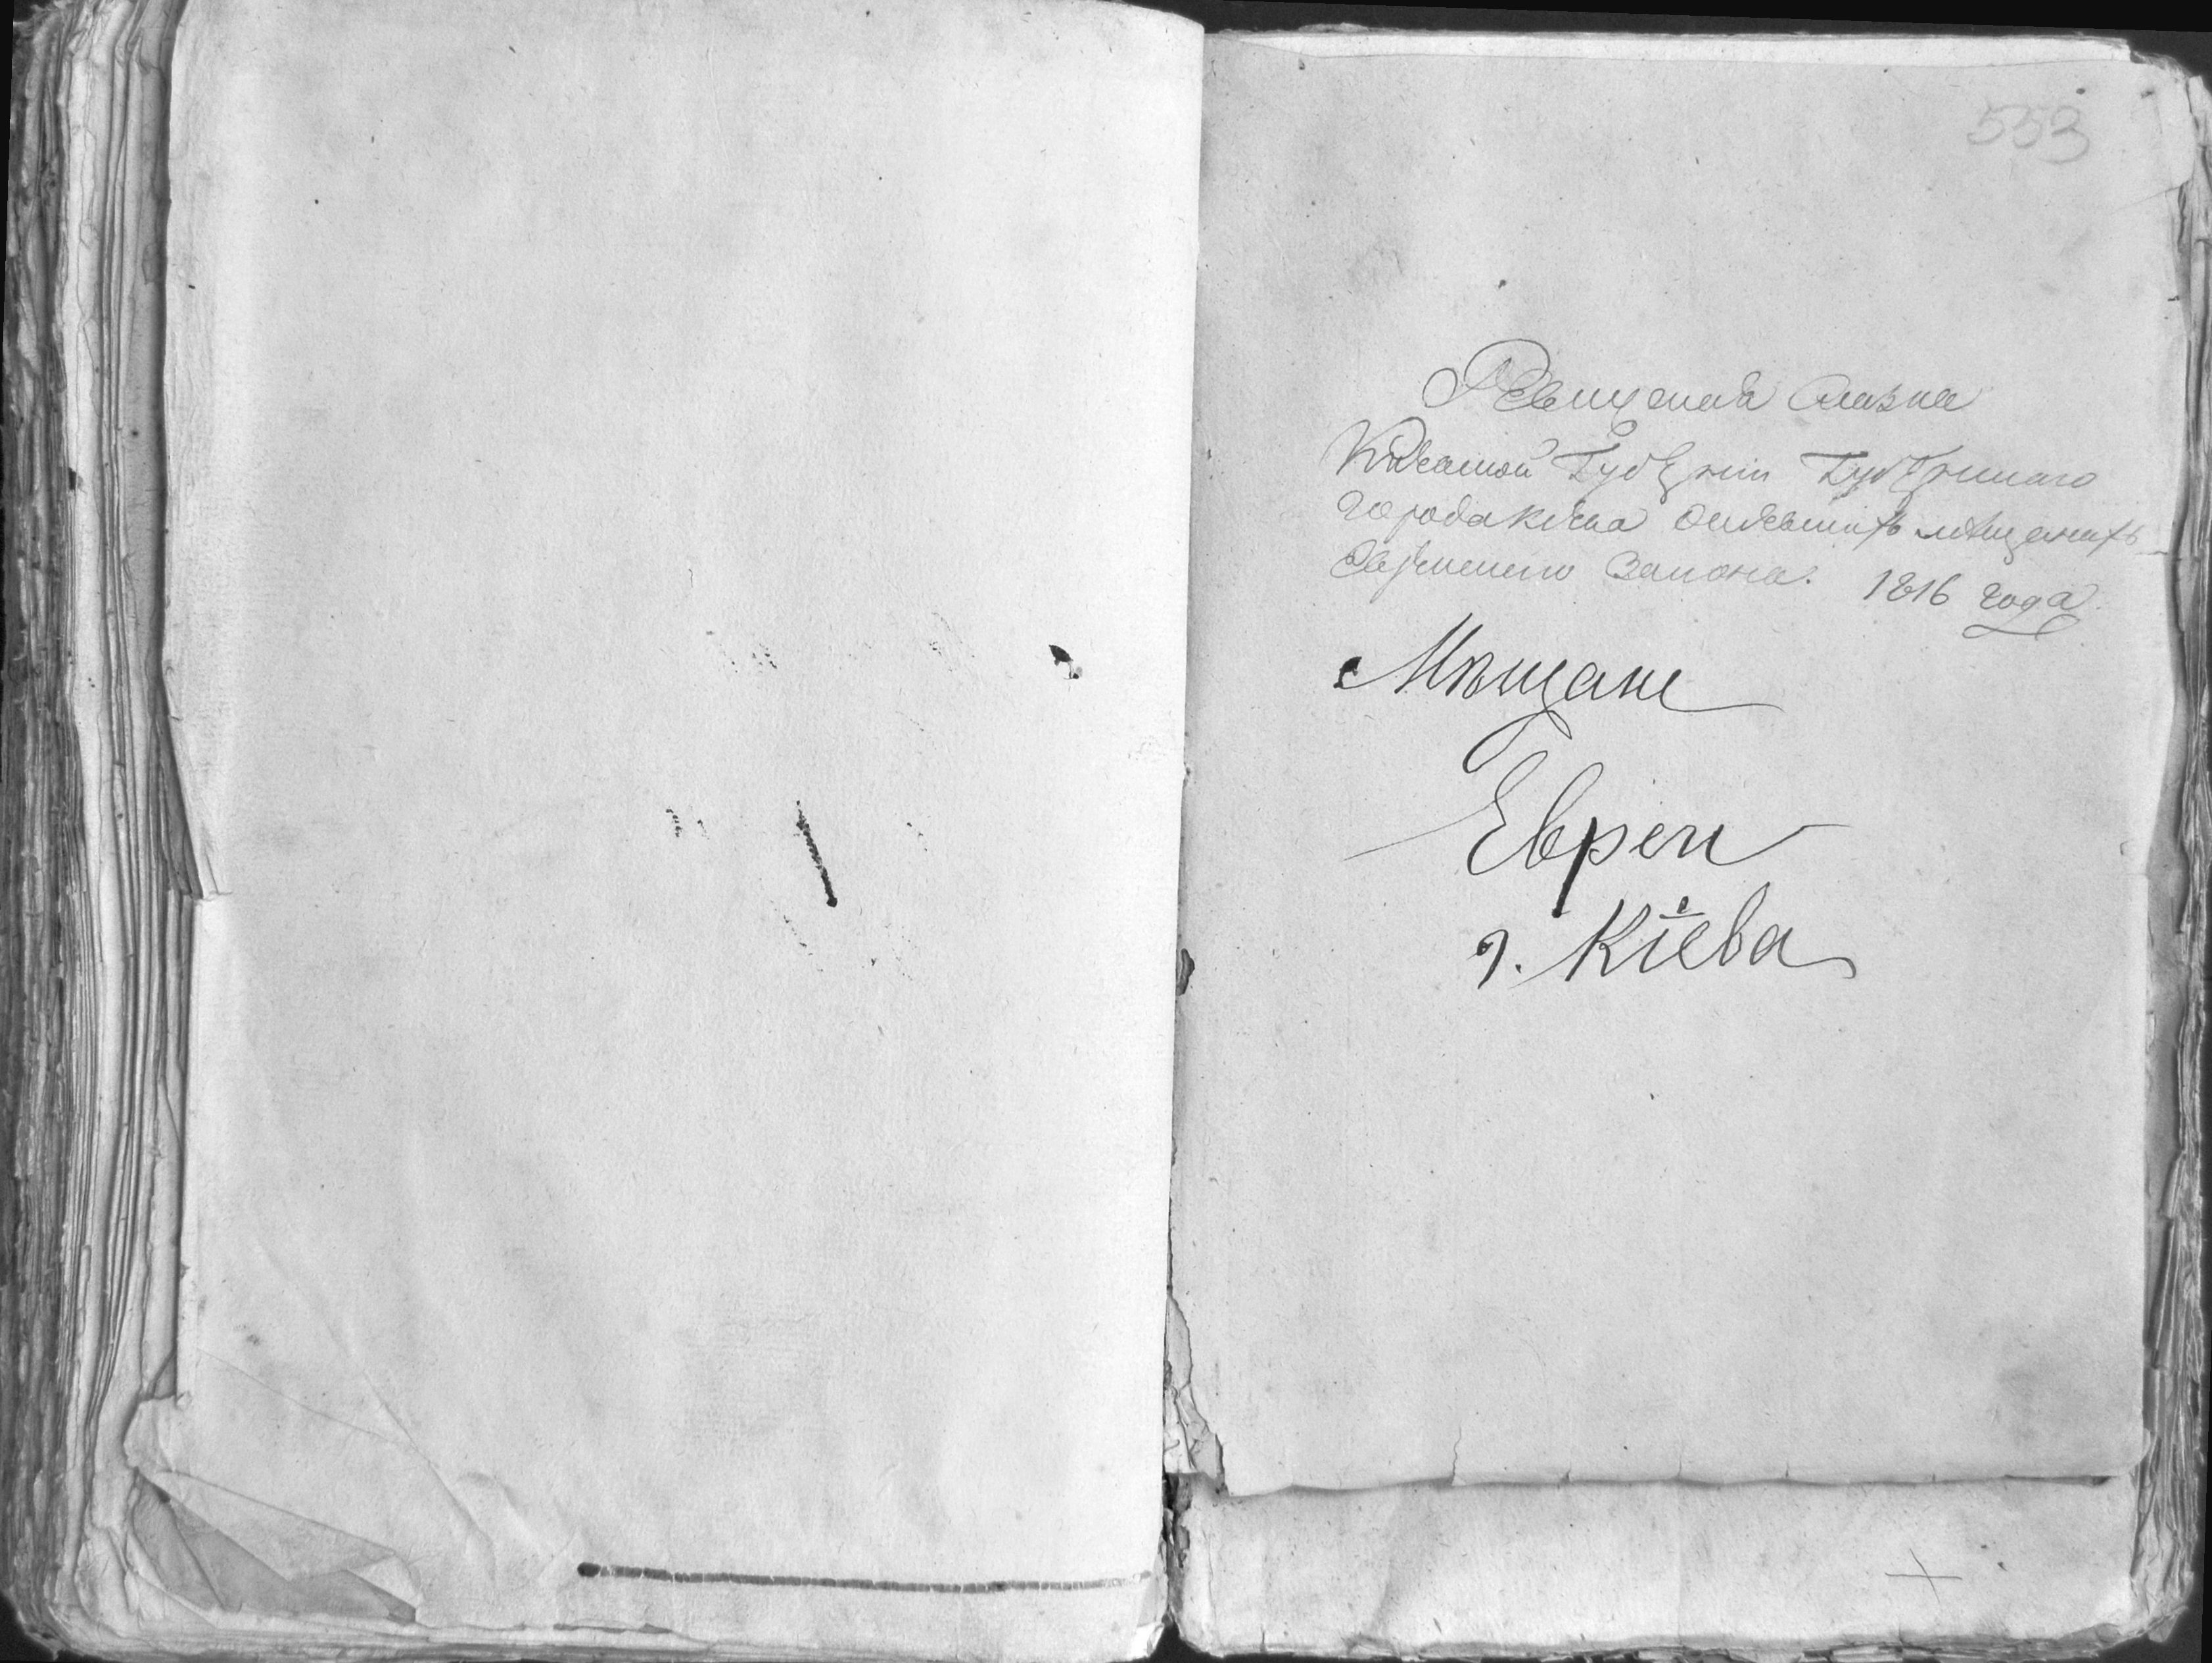 553
Ревизская Сказка
Кіевской Губерніи Губернскаго
города Кіева о мѣщанахъ
Еврейскаго Закона. 1816 года.
Мѣщане
Евреи
г. Кіева